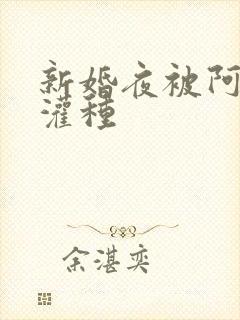 新婚夜被阿
灌种
余湛奕